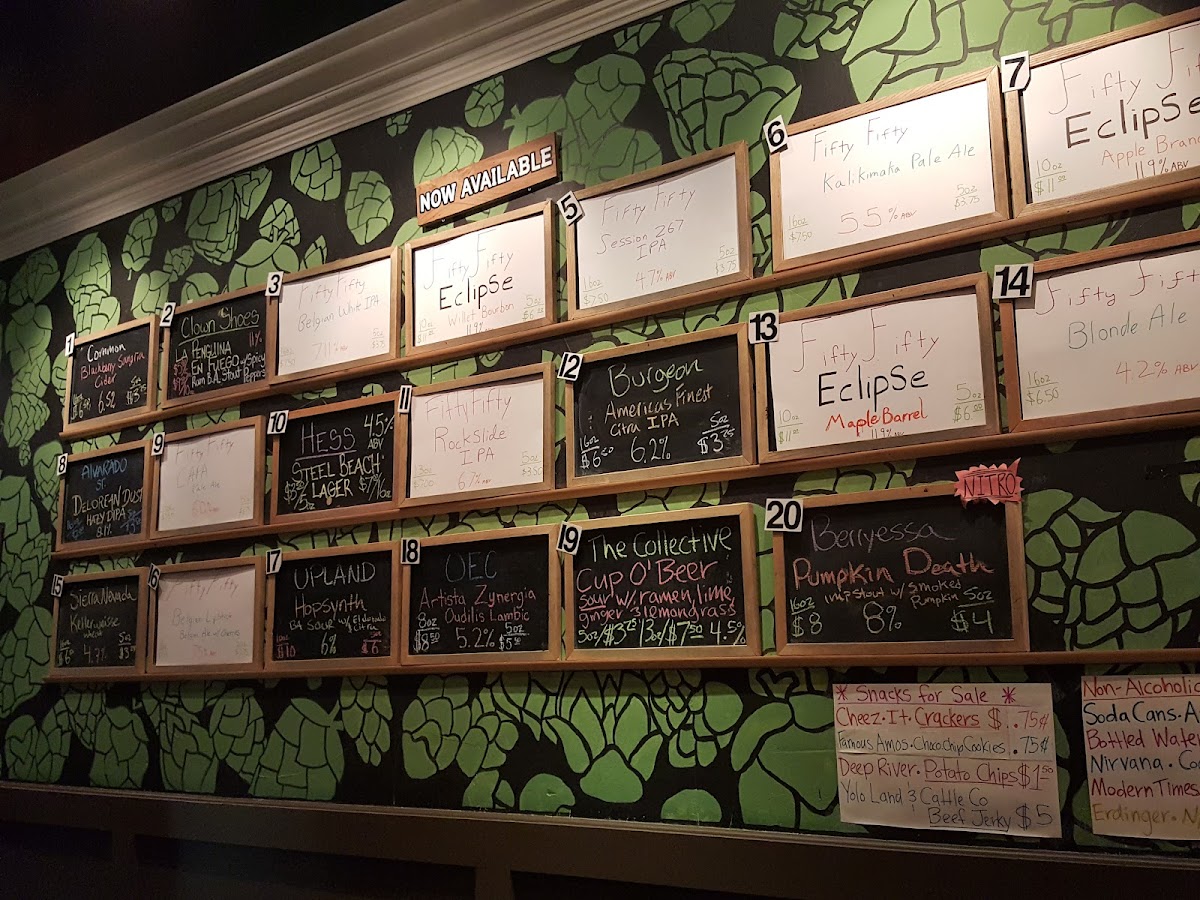 NOW AVAILABLE
1
Common
Blackberry Sangria
Cider
6.5%
2
Clown Shoes
11%
LA PENGUINA
EN FUEGO w/Spicy
Rum B.A. Stout Peppers
3
Fifty Fifty
Belgian White IPA
7.1% ABV
Fifty Fifty
EclipSe
Willet Bourbon
11.9%
5
Fifty Fifty
Session 267
IPA
4.7% ABV
16oz
$7.50
5oz
$3.75
6
Fifty Fifty
Kalikimaka Pale Ale
5.5% ABV
16oz
$7.50
5oz
$3.75
7
Fifty Fif
EclipSe
Apple Bran
11.9% ABV
10oz
$11.00
8
ALVARADO
ST
DELOREAN DUST
HAZY DIPA
9
Fifty Fifty
10
HESS 4.5%
ABV
STEEL BEACH
LAGER
5oz
11
Fifty Fifty
RockSlide
IPA
6.7% ABV
12
Burgeon
Americas Finest
Citra IPA
6.2%
16oz
5oz
13
Fifty Fifty
EclipSe
Maple Barrel
11.9% ABV
10oz
$11.00
5oz
$6.00
14
Fifty Fift
Blonde Ale
4.2% ABV
16oz
$6.50
5
Sierra Nevada
Kellerweise
6
Fifty Fifty
7
UPLAND
HopSynth
BA SOUR
6%
18
OEC
Artista Zynergia
Oudilis Lambic
8oz
$8.50
5.2%
5oz
$5.50
19
The Collective
Cup O'Beer
Sour w/ramen, lime,
ginger & lemongrass
5oz/$3.75 13oz/$7.50 4.5%
20
NITRO
Berryessa
Pumpkin Death
imp stout w/ smoked
Pumpkin
16oz
$8
8%
5oz
$4
* Snacks for Sale *
Cheez-It Crackers $..75¢
Famous Amos-Choco Chip Cookies .75¢
Deep River-Potato Chips $1.50
Yolo Land & Cattle Co
Beef Jerky $5
Non-Alcoholic
Soda Cans-A
Bottled Water
Nirvana-Co
Modern Times
Erdinger-N